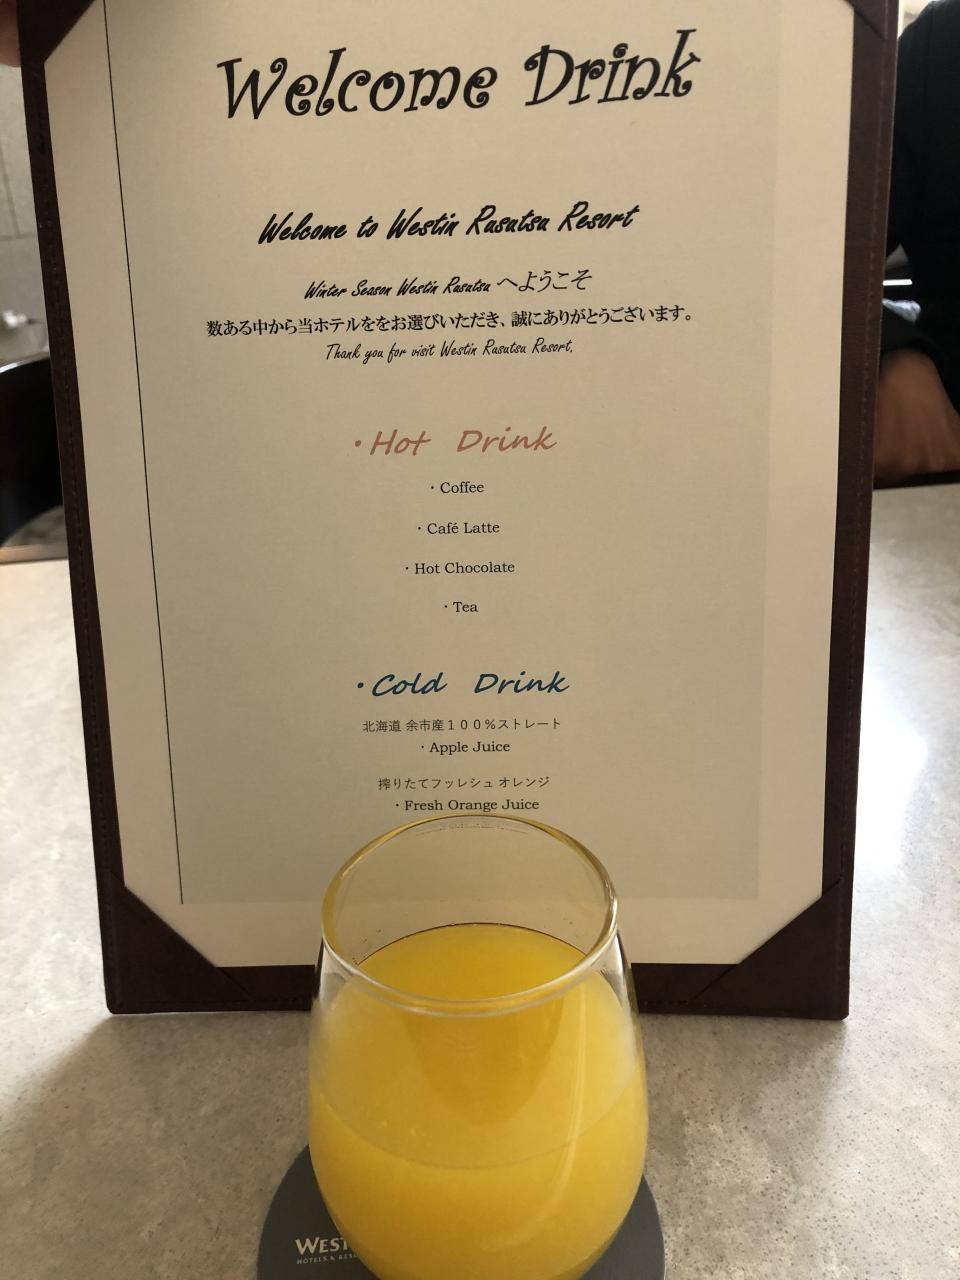 Welcome Drink
Welcome to Westin Rusutsu Resort
Winter Season Westin Rusutsu へようこそ
数ある中から当ホテルををお選びいただき、誠にありがとうございます。
Thank you for visit Westin Rusutsu Resort.
・Hot Drink
・Coffee
・Café Latte
・Hot Chocolate
・Tea
・Cold Drink
北海道 余市産１００％ストレート
・Apple Juice
搾りたてフッレシュ オレンジ
・Fresh Orange Juice
WEST
HOTELS & RES